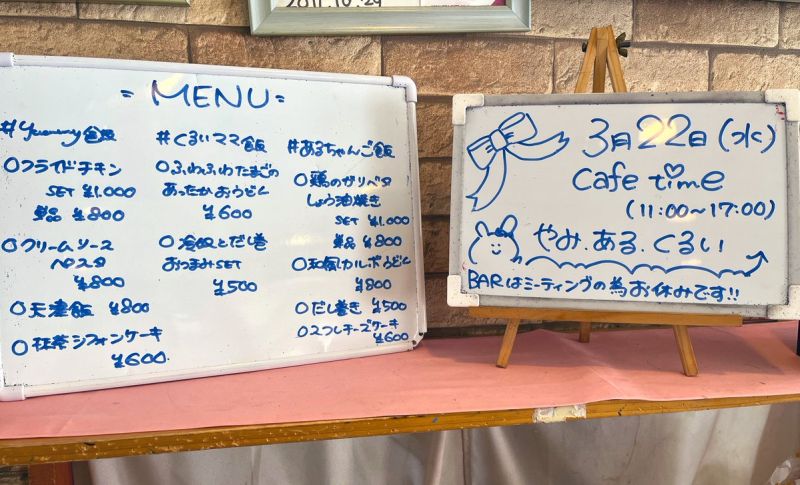 2011.10.29
= MENU =
#Yummy飯
○フライドチキン
SET ¥1.000
単品 ¥800
○クリームソース
パスタ
¥800
○天津飯 ¥800
○抹茶シフォンケーキ
¥600
#くるいママ飯
○ふわふわたまごの
あったかおうどん
¥600
○冷奴とだし巻
おつまみSET
¥500
#あるちゃんご飯
○鶏のガリバタ
しょう油焼き
SET ¥1.000
単品 ¥800
○和風カルボうどん
¥800
○だし巻き ¥500
○スフレチーズケーキ
¥600
3月22日(水)
Cafe time
(11:00~17:00)
やみ.ある.くるい
BARはミーティングの為お休みです!!